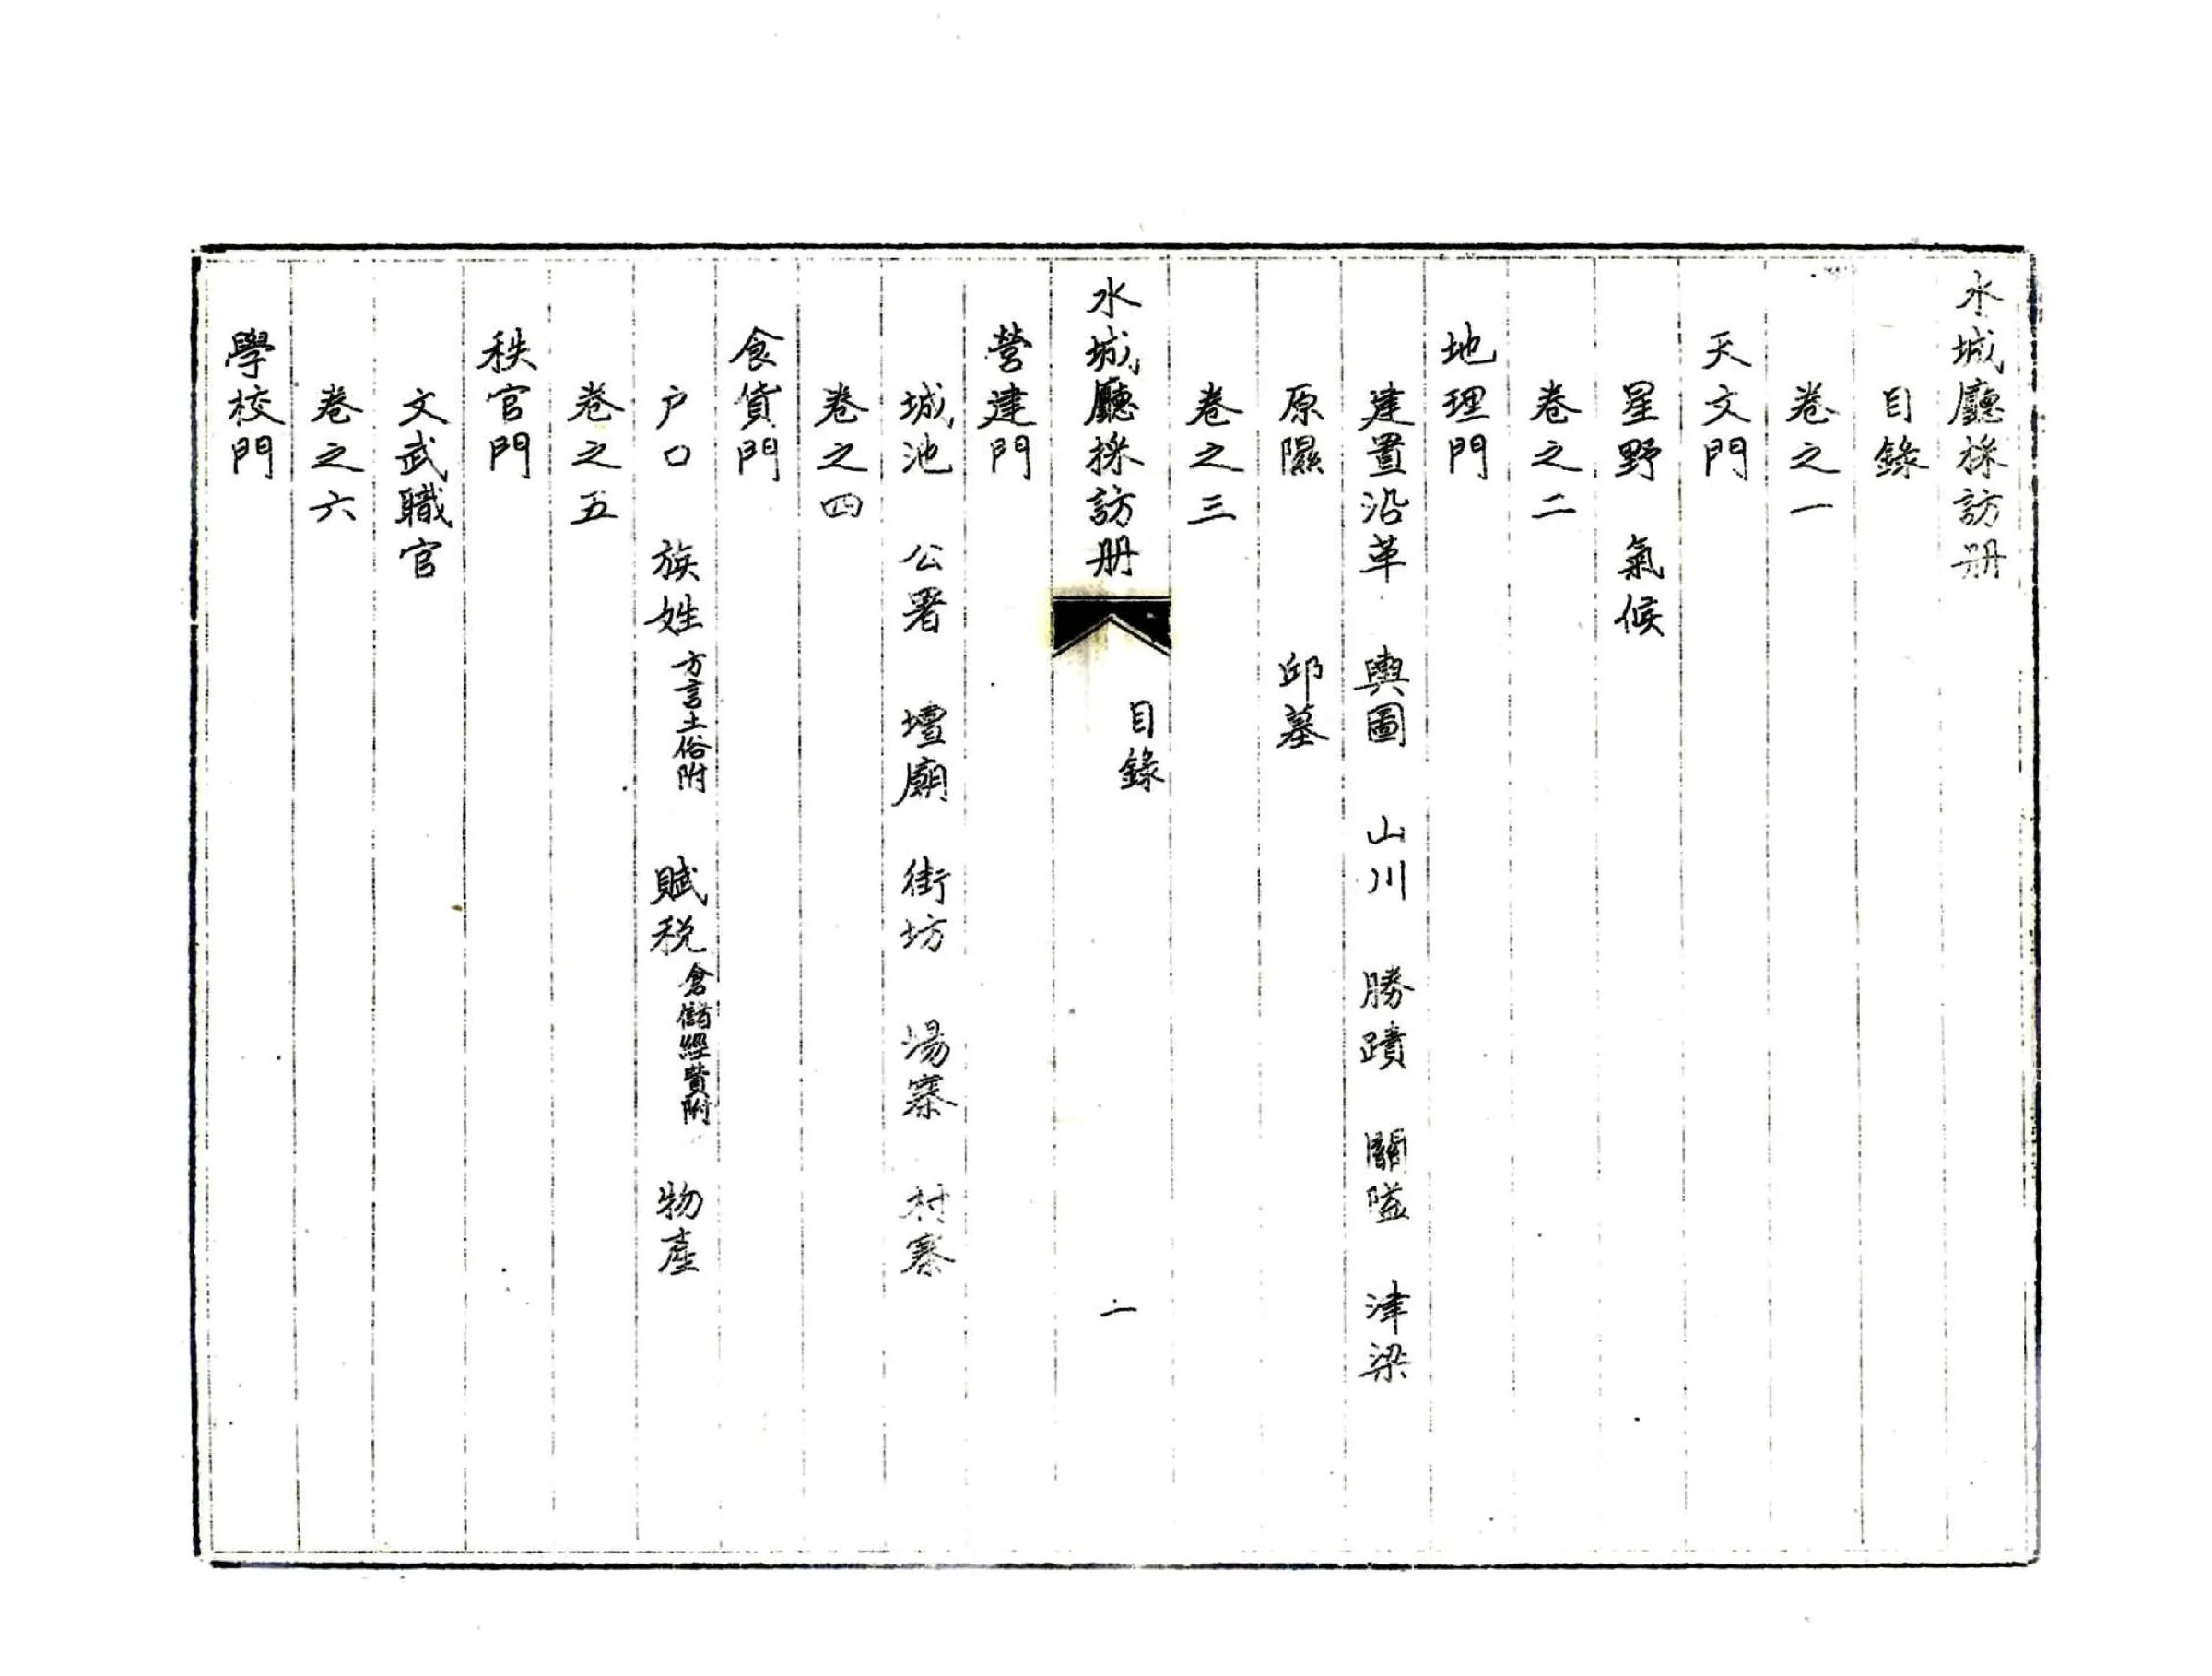 水城廳採訪册
目錄
卷之一
天文門
星野 氣候
卷之二
地理門
建置沿革 輿圖 山川 勝蹟 關隘 津梁
原隰 邱墓
卷之三
水城廳採訪册 目錄 一
營建門
城池 公署 壇廟 街坊 場寨 村寨
卷之四
食貨門
户口 族姓 方言土俗附 賦税 倉儲經費附 物產
卷之五
秩官門
文武職官
卷之六
學校門